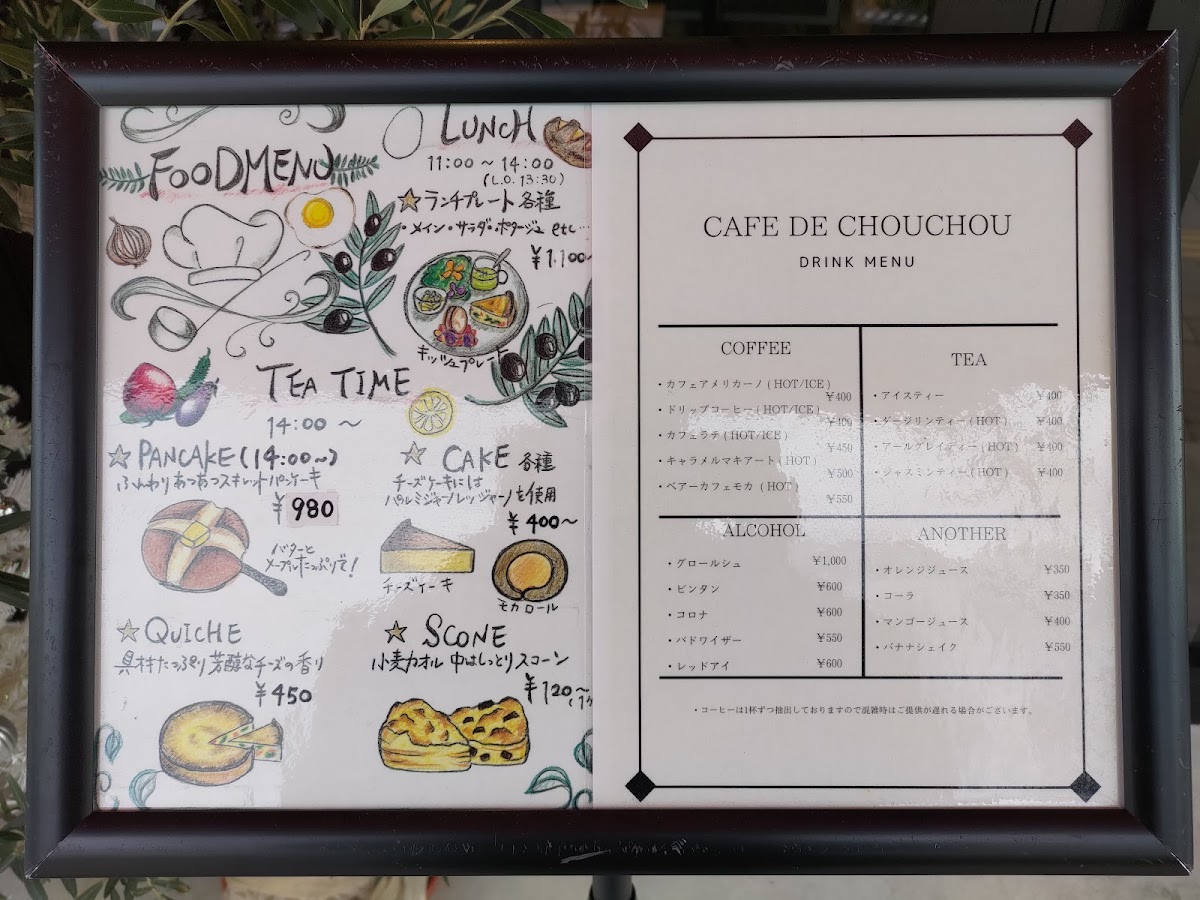 FOODMENU
LUNCH
11:00 ~ 14:00
(L.O. 13:30)
☆ランチプレート 各種
・メイン・サラダ・ポタージュ etc…
¥1,100~
キッシュプレート
TEA TIME
14:00 ~
☆PANCAKE (14:00~)
ふんわりあつあつスキレットパンケーキ
¥980
バターと
メープルたっぷりで!
☆CAKE 各種
チーズケーキには
パルミジャーノレッジャーノを使用
¥400~
チーズケーキ
モカロール
☆QUICHE
具材たっぷり芳醇なチーズの香り
¥450
☆SCONE
小麦カオル 中はしっとりスコーン
¥120~
CAFE DE CHOUCHOU
DRINK MENU
COFFEE
・カフェアメリカーノ ( HOT/ICE )
¥400
・ドリップコーヒー ( HOT/ICE )
¥400
・カフェラテ ( HOT/ICE )
¥450
・キャラメルマキアート ( HOT )
¥500
・ベアーカフェモカ ( HOT )
¥550
TEA
・アイスティー ¥400
・ダージリンティー ( HOT ) ¥400
・アールグレイティー ( HOT ) ¥400
・ジャスミンティー ( HOT ) ¥400
ALCOHOL
・グロールシュ ¥1,000
・ビンタン ¥600
・コロナ ¥600
・バドワイザー ¥550
・レッドアイ ¥600
ANOTHER
・オレンジジュース ¥350
・コーラ ¥350
・マンゴージュース ¥400
・バナナシェイク ¥550
・コーヒーは1杯ずつ抽出しておりますので混雑時はご提供が遅れる場合がございます。